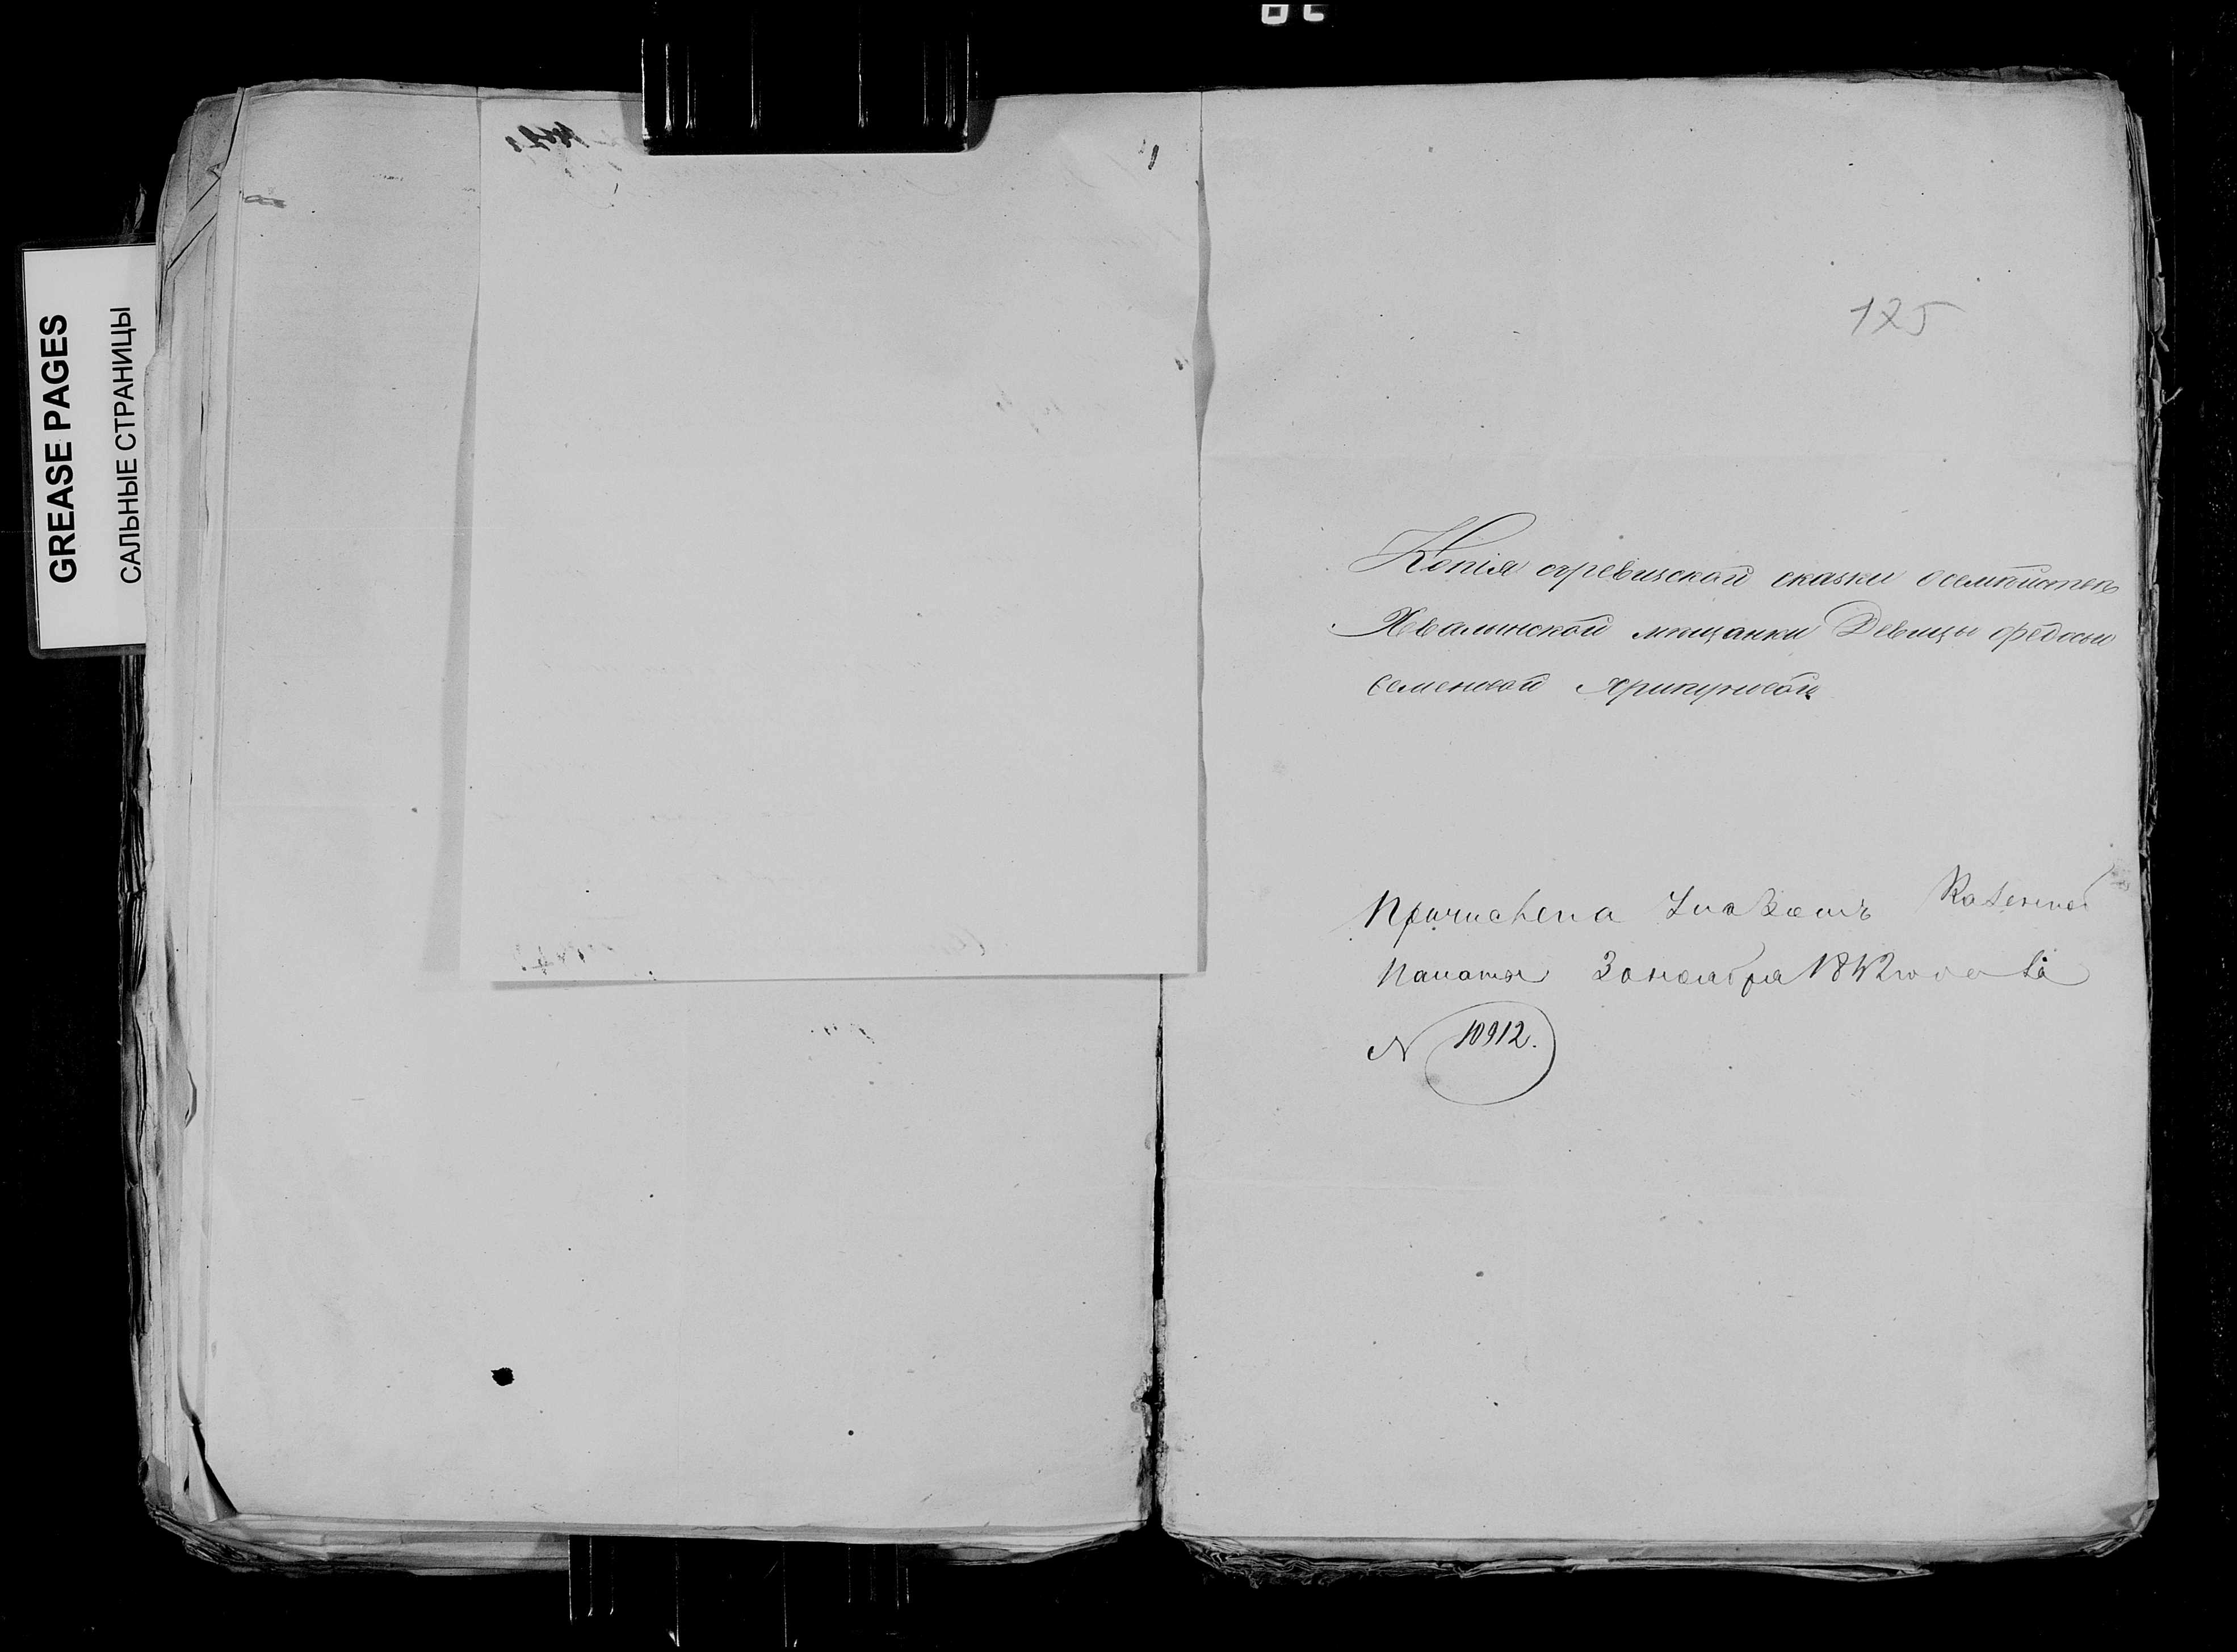 GREASE PAGES
САЛЬНЫЕ СТРАНИЦЫ
125
Копія съ ревизской сказки о семействе
Хвалынской мещанки Девицы Федосьи
Семеновой
Причислена Указомъ Казенной
Палаты 30 ноября 1842 года за
N 10912.